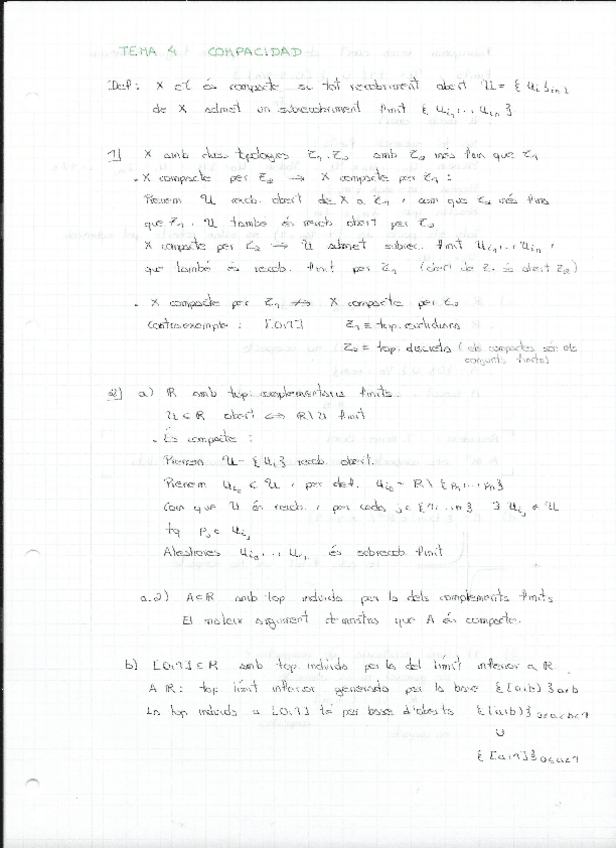 TEMA 4 COMPACIDAD
Def: X és compacte si tot recobriment obert U = {Ui}i∈I
de X admet un subrecobriment finit {Ui1, ... Uin}
1] X amb dues topologies τ1, τ2 amb τ2 més fina que τ1
. X compacte per τ2 → X compacte per τ1 :
Prenem U recob. obert de X a τ1, com que τ2 més fina
que τ1, U també és recob obert per τ2
X compacte per τ2 → U admet subrec. finit Ui1, ... Uin,
que també és recob. finit per τ1 (obert de τ1 és obert τ2)
. X compacte per τ1 ↛ X compacte per τ2
Contraexemple : [0,1] τ1 = top. euclidiana
τ2 = top. discreta (els compactes són els
conjunts finits)
2] a) R amb top. complementaris finits.
U ⊂ R obert ⇔ R\U finit
. És compacte :
Prenem U = {Ui} recob. obert.
Prenem Ui0 ∈ U, per def. Ui0 = R \ {p1, ..., pn}
Com que U és recob., per cada j ∈ {1, ..., n} ∃ Uij ∈ U
tq pj ∈ Uij
Aleshores Ui0, ..., Uin és subrecob finit
a.2) A⊂R amb top induida per la dels complements finits
El mateix argument demostra que A és compacte.
b) [0,1] ⊂ R amb top. induida per la del límit inferior a R.
A R: top límit inferior generada per la base {[a,b)}a<b
La top induida a [0,1] té per base d'oberts {[a,b)}0≤a<b<1
∪
{[a,1]}0≤a<1